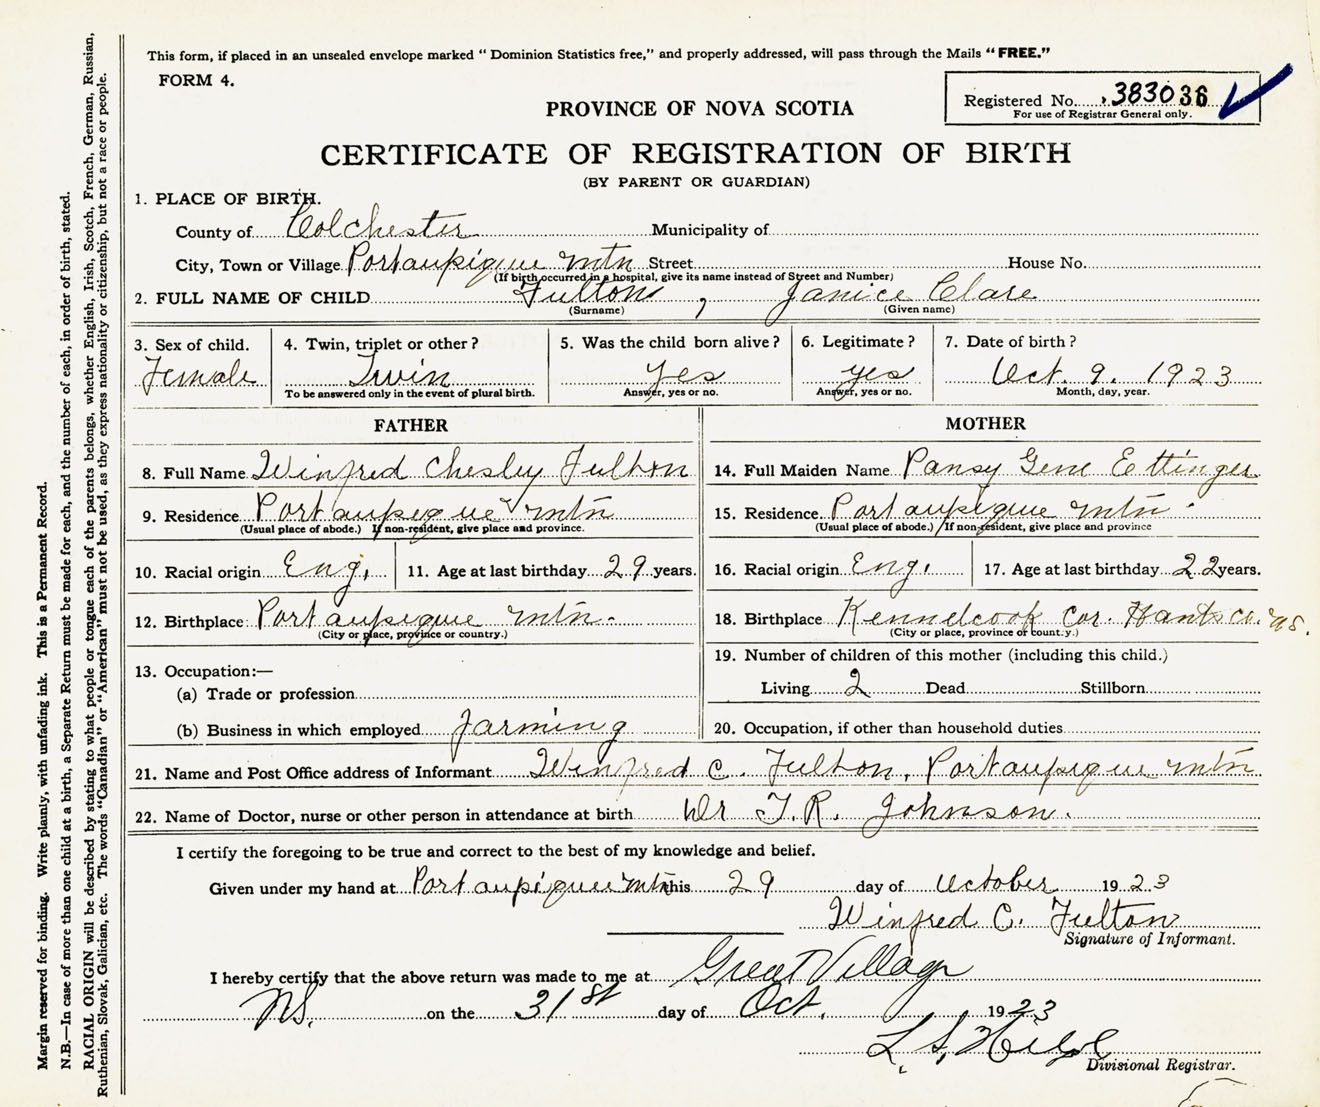 This form, if placed in an unsealed envelope marked "Dominion Statistics free," and properly addressed, will pass through the Mails "FREE."
FORM 4.
Registered No. 383036
For use of Registrar General only.
PROVINCE OF NOVA SCOTIA
CERTIFICATE OF REGISTRATION OF BIRTH
(BY PARENT OR GUARDIAN)
1. PLACE OF BIRTH.
County of Colchester Municipality of
City, Town or Village Portaupique mtn Street House No.
(If birth occurred in a hospital, give its name instead of Street and Number)
2. FULL NAME OF CHILD Fulton, Janice Clare
(Surname) (Given name)
3. Sex of child. 4. Twin, triplet or other? 5. Was the child born alive? 6. Legitimate? 7. Date of birth?
Female Twin Yes yes Oct. 9. 1923
To be answered only in the event of plural birth. Answer, yes or no. Answer, yes or no. Month, day, year.
FATHER MOTHER
8. Full Name Winfred Chesley Fulton
9. Residence Portaupique mtn
(Usual place of abode.) If non-resident, give place and province.
10. Racial origin Eng. 11. Age at last birthday 29 years.
12. Birthplace: Portaupique mtn.
(City or place, province or country.)
13. Occupation:—
(a) Trade or profession
(b) Business in which employed farming
14. Full Maiden Name Pansy Gene Ettinger
15. Residence Portaupique mtn
(Usual place of abode.) If non-resident, give place and province
16. Racial origin Eng. 17. Age at last birthday 22 years.
18. Birthplace Kennelcook Cor. Hants Co. N.S.
(City or place, province or count.y.)
19. Number of children of this mother (including this child.)
Living 2 Dead Stillborn
20. Occupation, if other than household duties
21. Name and Post Office address of Informant Winfred C. Fulton, Portaupique mtn
22. Name of Doctor, nurse or other person in attendance at birth Dr T. R. Johnson.
I certify the foregoing to be true and correct to the best of my knowledge and belief.
Given under my hand at Portaupique mtn this 29 day of October 1923
Winfred C. Fulton
Signature of Informant.
I hereby certify that the above return was made to me at Great Village
N.S. on the 31st day of Oct. 1923
L. S.
Divisional Registrar.
Margin reserved for binding. Write plainly, with unfading ink. This is a Permanent Record.
N.B.—In case of more than one child at a birth, a Separate Return must be made for each, and the number of each, in order of birth, stated.
RACIAL ORIGIN will be described by stating to what people or tongue each of the parents belongs, whether English, Irish, Scotch, French, German, Russian,
Ruthenian, Slovak, Galician, etc. The words "Canadian" or "American" must not be used, as they express nationality or citizenship, but not a race or people.